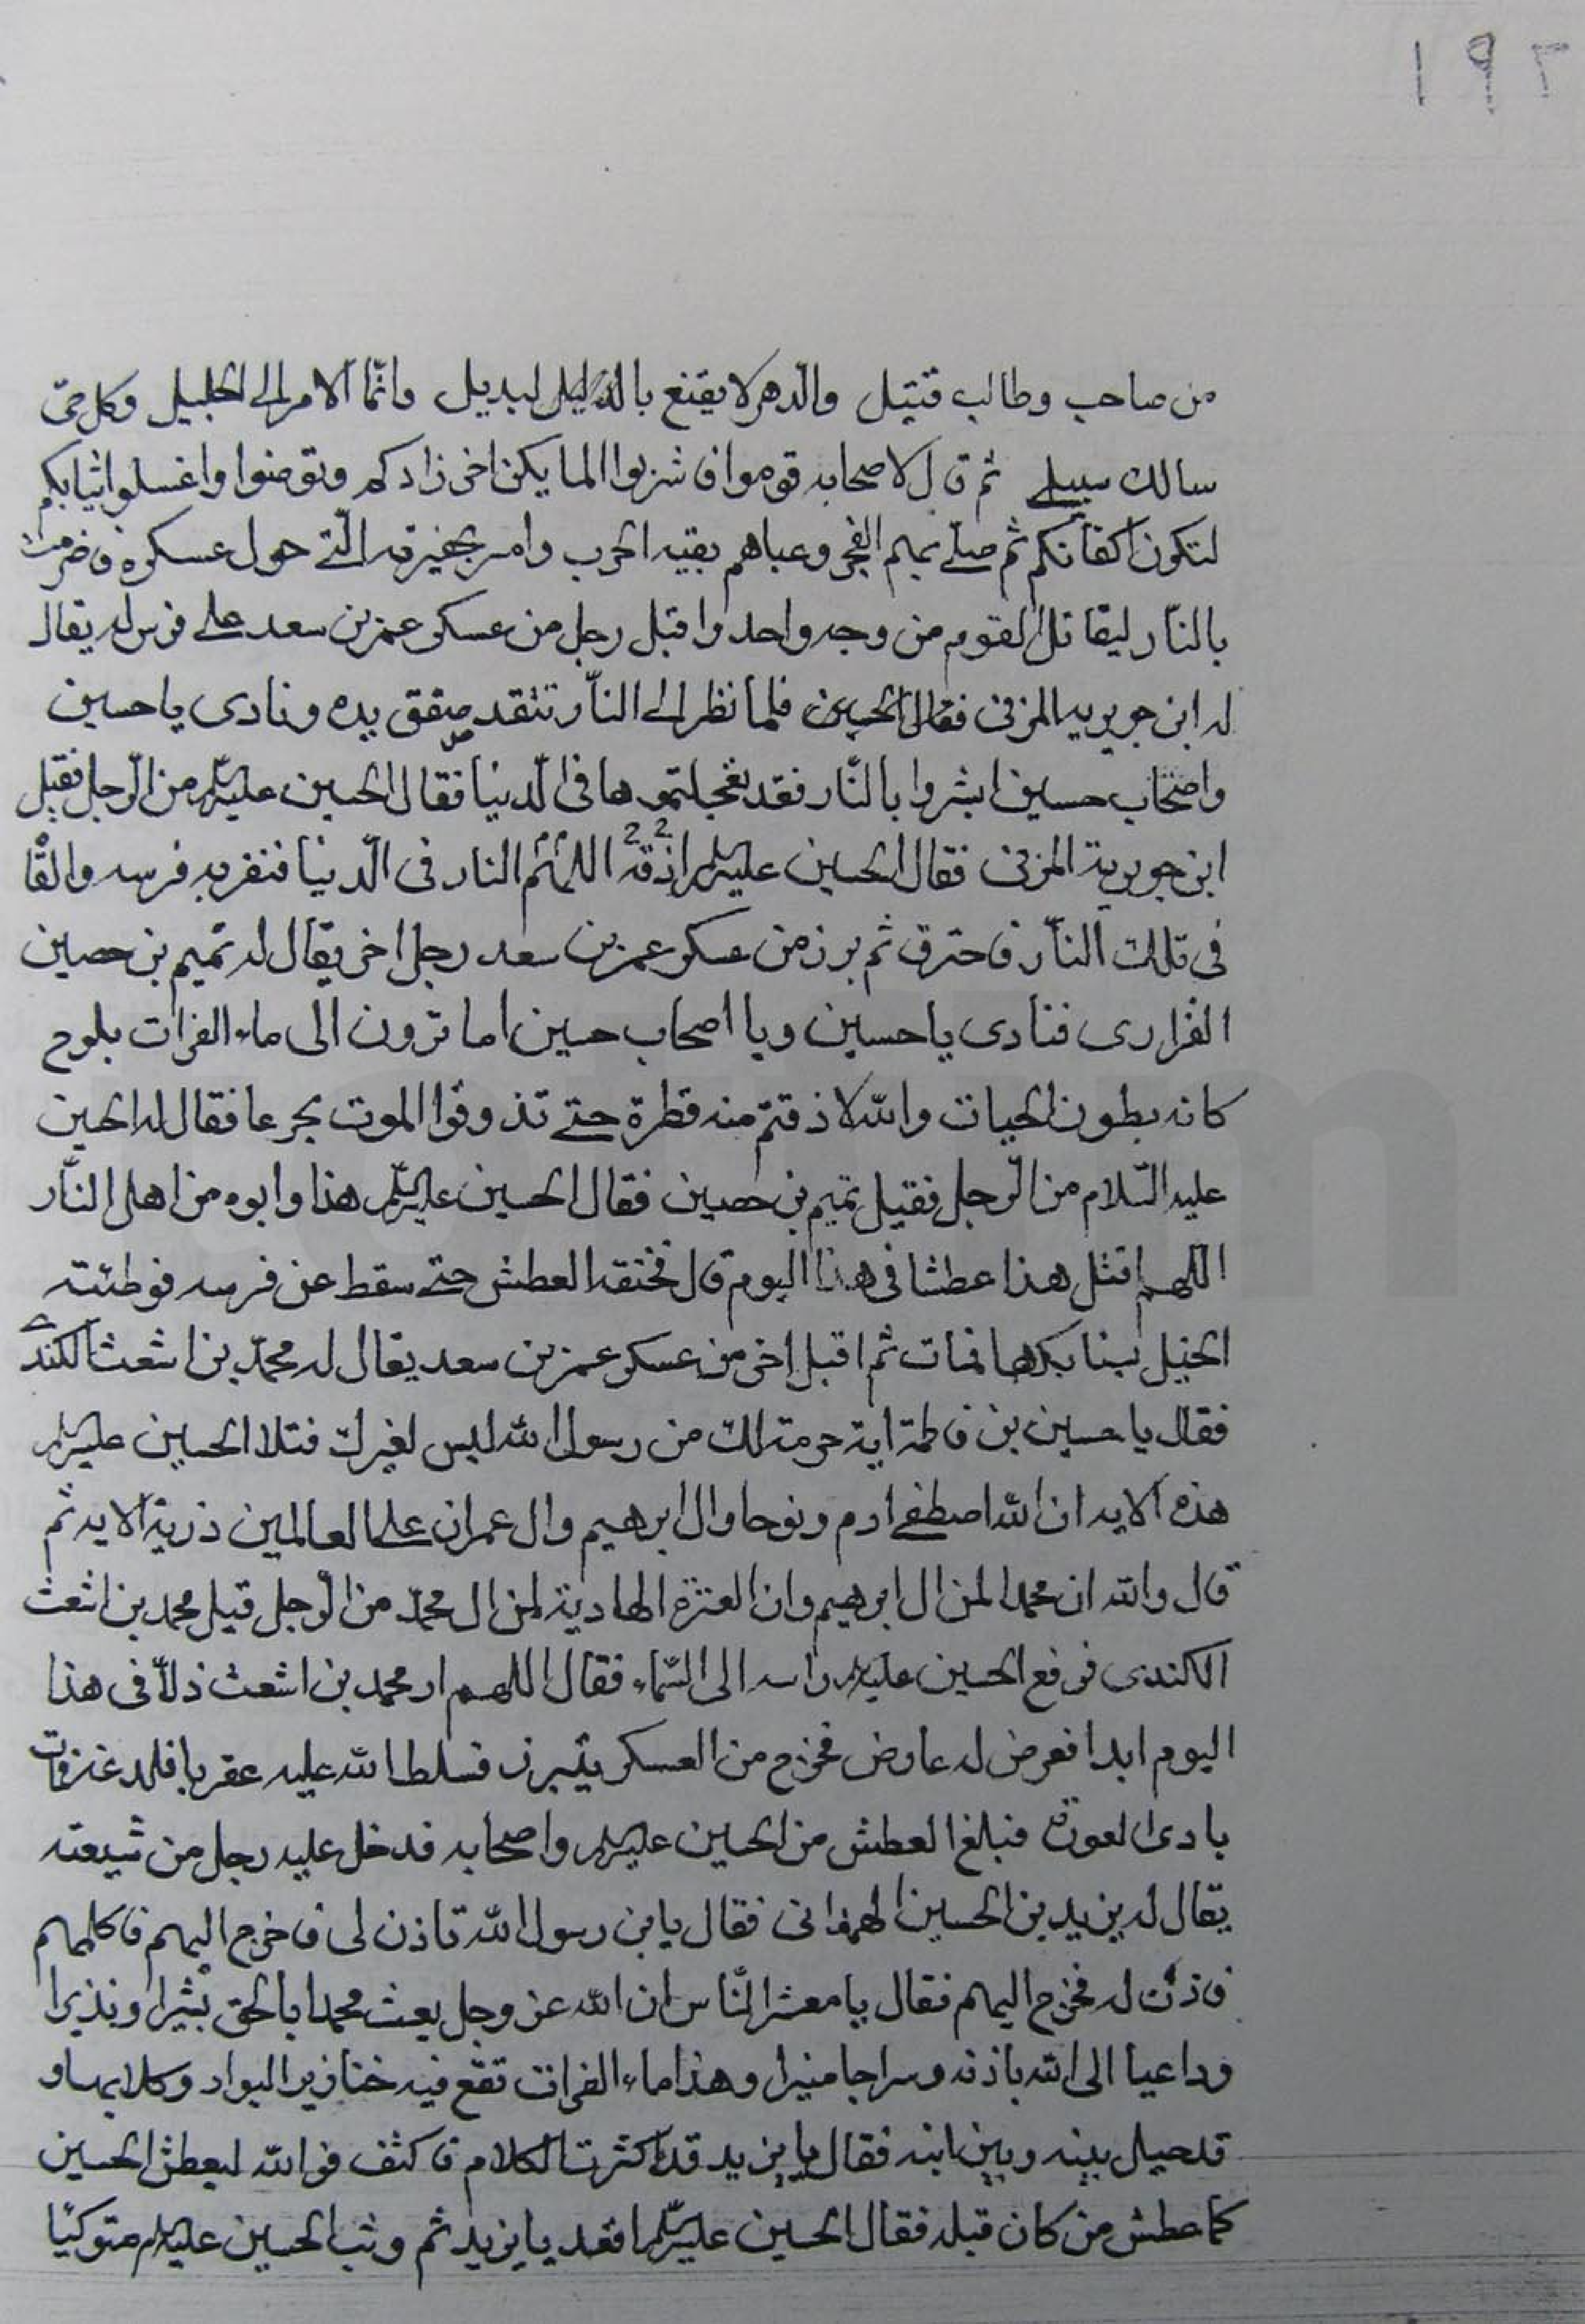 ١٩٢
من صاحب وطالب قتيل والدهر لا يقنع بالدليل لبديل وانّما الامر الى الجليل وكل حىّ
سالك سبيلے ثم قال لاصحابه قوموا فاشربوا الما يكن اخر زادكم وتوضئوا واغسلوا ثيابكم
لتكون اكفانكم ثم صلّے بهم الفجر وعباهم بقيه الحرب وامر بحفيرته الّتے حول عسكره فاضرمت
بالنّار ليقاتل القوم من وجه واحد واقبل رجل من عسكر عمر بن سعد علے فرس له يقال
له ابن جويريه المزنى فقال الحسين فلما نظر الى النّار تتقد صفق بيده ونادى يا حسين
واصحاب حسين ابشروا بالنّار فقد تعجلتموها فى الّدنيا فقال الحسين عليه السلم من الّرجل فقيل
ابن جويرية المزنى فقال الحسين عليه السلم اذقه اللهم النار فى الّدنيا فنفر به فرسه والقا
فى تلك النّار فاحترق ثم برز من عسكر عمر بن سعد رجل اخر يقال له تميم بن حصين
الفرارى فنادى يا حسين ويا اصحاب حسين اما ترون الى ماء الفرات يلوح
كانه بطون الحيات والله لا ذقتم منه قطرة حتے تذوقوا الموت جرعا فقال له الحسين
عليه السّلام من الّرجل فقيل تميم بن حصين فقال الحسين عليه السلم هذا وابوه من اهل النّار
اللهم اقتل هذا عطشا فى هذا اليوم قال فخنقه العطش حتے سقط عن فرسه فوطئته
الخيل بسنابكها فمات ثم اقبل اخر من عسكر عمر بن سعد يقال له محمّد بن اشعث الكندے
فقال يا حسين بن فاطمة اية حرمة لك من رسول الله ليس لغيرك فتلا الحسين عليه السلم
هذه الايه ان الله اصطفے ادم ونوحا وال ابرهيم وال عمران علے العالمين ذرية الايه ثم
قال والله ان محمدا لمن ال ابرهيم وان العترة الهادية لمن ال محمّد من الّرجل قيل محمد بن اشعث
الكندى فرفع الحسين عليه السلم راسه الى السّماء فقال اللهم ار محمد بن اشعث ذلاّ فى هذا
اليوم ابدا فعرض له عارض فخرج من العسكر يتبرز فسلط الله عليه عقربا فلدغته فمات
بادى العورة فبلغ العطش من الحسين عليه السلم واصحابه فدخل عليه رجل من شيعته
يقال له يزيد بن الحسين الهمدانى فقال يا بن رسول الله تاذن لى فاخرج اليهم فاكلمهم
فاذن له فخرج اليهم فقال يا معشر النّاس ان الله عز وجل بعث محمدا بالحق بشيرا ونذيرا
وداعيا الى الله باذنه وسراجا منيرا وهذا ماء الفرات تقع فيه خنازير البواد وكلابها و
قد حيل بينه وبين ابنه فقال يا يزيد قد اكثرت الكلام فاكثف فو الله ليعطش الحسين
كما عطش من كان قبله فقال الحسين عليه السّلم اقعد يا يزيد ثم وثب الحسين عليه السلم متوكيًا